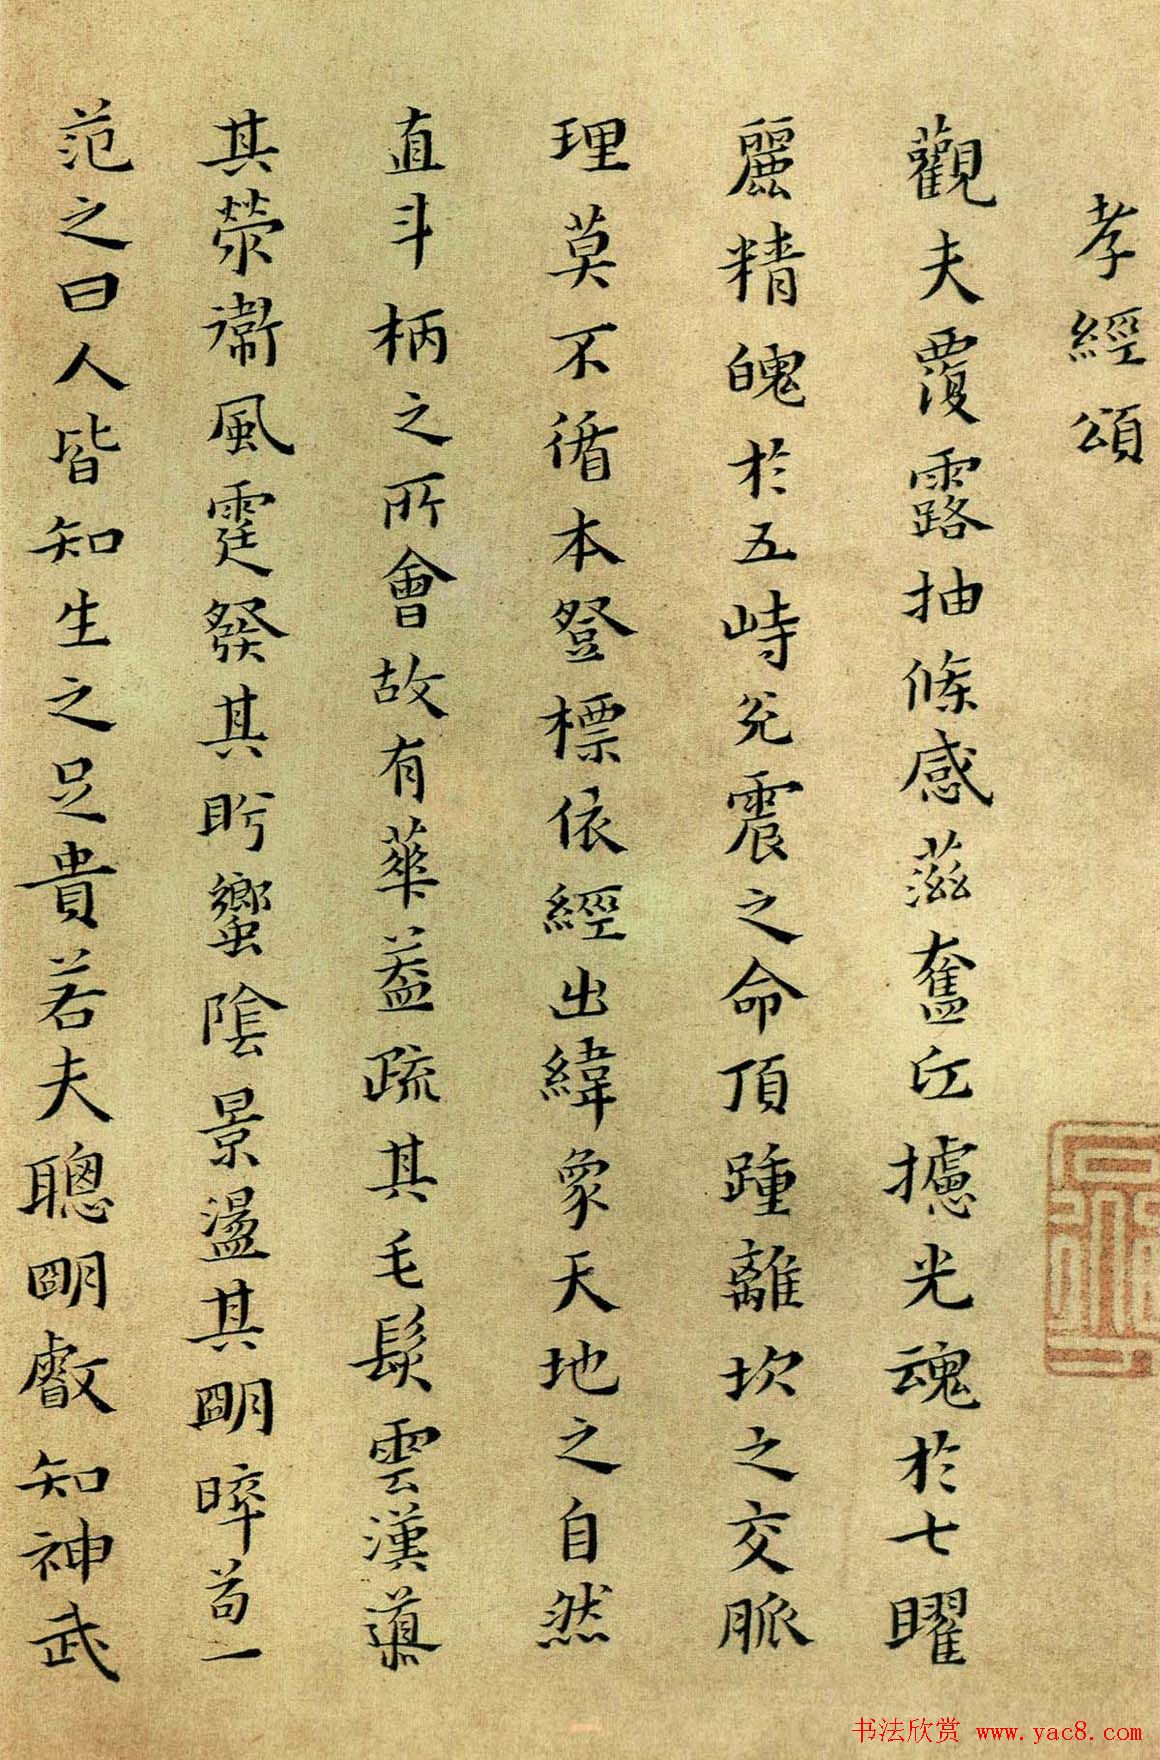 孝經頌
觀夫覆露抽條感蒸奮丘攄光魂於七曜
麗精魄於五峙兊震之命頂踵離坎之交脈
理莫不循本登標依經出緯象天地之自然
直斗柄之所會故有華蓋疏其毛髮雲漢導
其滎衞風霆發其肸蠁陰景盪其明晬苟一
范之曰人皆知生之足貴若夫聰明叡知神武
书法欣赏 www.yac8.com